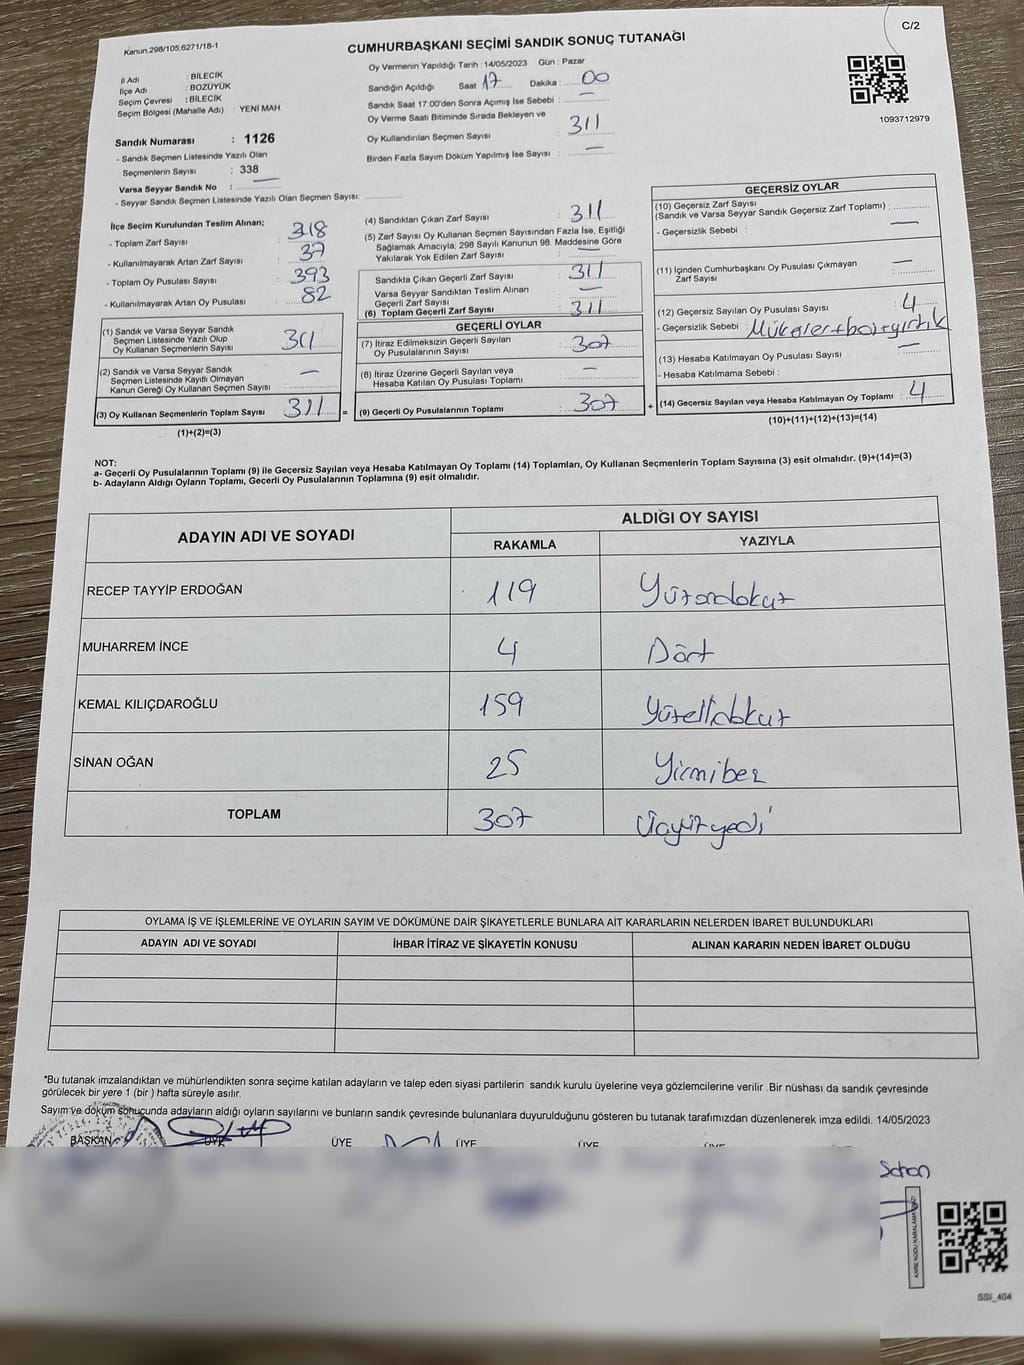 C/2
Kanun.298/105,6271/18-1
CUMHURBAŞKANI SEÇİMİ SANDIK SONUÇ TUTANAĞI
İl Adı : BİLECİK
İlçe Adı : BOZÜYÜK
Seçim Çevresi : BİLECİK
Seçim Bölgesi (Mahalle Adı) : YENİ MAH.
Oy Vermenin Yapıldığı Tarih : 14/05/2023 Gün : Pazar
Sandığın Açıldığı Saat 17 Dakika : 00
Sandık Saat 17:00'den Sonra Açımış İse Sebebi : —
Oy Verme Saati Bitiminde Sırada Bekleyen ve
Oy Kullandırılan Seçmen Sayısı 311
Birden Fazla Sayım Döküm Yapılmış İse Sayısı : —
1093712979
Sandık Numarası : 1126
- Sandık Seçmen Listesinde Yazılı Olan
Seçmenlerin Sayısı : 338
Varsa Seyyar Sandık No : —
- Seyyar Sandık Seçmen Listesinde Yazılı Olan Seçmen Sayısı:
İlçe Seçim Kurulundan Teslim Alınan;
- Toplam Zarf Sayısı 348
- Kullanılmayarak Artan Zarf Sayısı 37
- Toplam Oy Pusulası Sayısı 393
- Kullanılmayarak Artan Oy Pusulası 82
(1) Sandık ve Varsa Seyyar Sandık
Seçmen Listesinde Yazılı Olup
Oy Kullanan Seçmenlerin Sayısı 311
(2) Sandık ve Varsa Seyyar Sandık
Seçmen Listesinde Kayıtlı Olmayan
Kanun Gereği Oy Kullanan Seçmen Sayısı : —
(3) Oy Kullanan Seçmenlerin Toplam Sayısı 311 =
(1)+(2)=(3)
(4) Sandıktan Çıkan Zarf Sayısı : 311
(5) Zarf Sayısı Oy Kullanan Seçmen Sayısından Fazla İse, Eşitliği
Sağlamak Amacıyla; 298 Sayılı Kanunun 98. Maddesine Göre
Yakılarak Yok Edilen Zarf Sayısı : —
Sandıkta Çıkan Geçerli Zarf Sayısı : 311
Varsa Seyyar Sandıktan Teslim Alınan
Geçerli Zarf Sayısı : —
(6) Toplam Geçerli Zarf Sayısı : 311
GEÇERLİ OYLAR
(7) İtiraz Edilmeksizin Geçerli Sayılan
Oy Pusulalarının Sayısı : 307
(8) İtiraz Üzerine Geçerli Sayılan veya
Hesaba Katılan Oy Pusulası Toplamı : —
(9) Geçerli Oy Pusulalarının Toplamı : 307 +
GEÇERSİZ OYLAR
(10) Geçersiz Zarf Sayısı
(Sandık ve Varsa Seyyar Sandık Geçersiz Zarf Toplamı) :
- Geçersizlik Sebebi : —
(11) İçinden Cumhurbaşkanı Oy Pusulası Çıkmayan
Zarf Sayısı —
(12) Geçersiz Sayılan Oy Pusulası Sayısı : 4
- Geçersizlik Sebebi :
(13) Hesaba Katılmayan Oy Pusulası Sayısı : —
- Hesaba Katılmama Sebebi :
(14) Geçersiz Sayılan veya Hesaba Katılmayan Oy Toplamı : 4
(10)+(11)+(12)+(13)=(14)
NOT:
a- Geçerli Oy Pusulalarının Toplamı (9) ile Geçersiz Sayılan veya Hesaba Katılmayan Oy Toplamı (14) Toplamları, Oy Kullanan Seçmenlerin Toplam Sayısına (3) eşit olmalıdır. (9)+(14)=(3)
b- Adayların Aldığı Oyların Toplamı, Geçerli Oy Pusulalarının Toplamına (9) eşit olmalıdır.
ADAYIN ADI VE SOYADI
ALDIĞI OY SAYISI
RAKAMLA YAZIYLA
RECEP TAYYİP ERDOĞAN 119 Yüzondokuz
MUHARREM İNCE 4 Dört
KEMAL KILIÇDAROĞLU 159 Yüzellidokuz
SİNAN OĞAN 25 Yirmibeş
TOPLAM 307 Üçyüzyedi
OYLAMA İŞ VE İŞLEMLERİNE VE OYLARIN SAYIM VE DÖKÜMÜNE DAİR ŞİKAYETLERLE BUNLARA AİT KARARLARIN NELERDEN İBARET BULUNDUKLARI
ADAYIN ADI VE SOYADI İHBAR İTİRAZ VE ŞİKAYETİN KONUSU ALINAN KARARIN NEDEN İBARET OLDUĞU
*Bu tutanak imzalandıktan ve mühürlendikten sonra seçime katılan adayların ve talep eden siyasi partilerin sandık kurulu üyelerine veya gözlemcilerine verilir .Bir nüshası da sandık çevresinde
görülecek bir yere 1 (bir ) hafta süreyle asılır.
Sayım ve döküm sonucunda adayların aldığı oyların sayılarını ve bunların sandık çevresinde bulunanlara duyurulduğunu gösteren bu tutanak tarafımızdan düzenlenerek imza edildi. 14/05/2023
BAŞKAN ÜYE ÜYE ÜYE ÜYE
KARE KODU KARALAMAYINIZ!
SSI_404